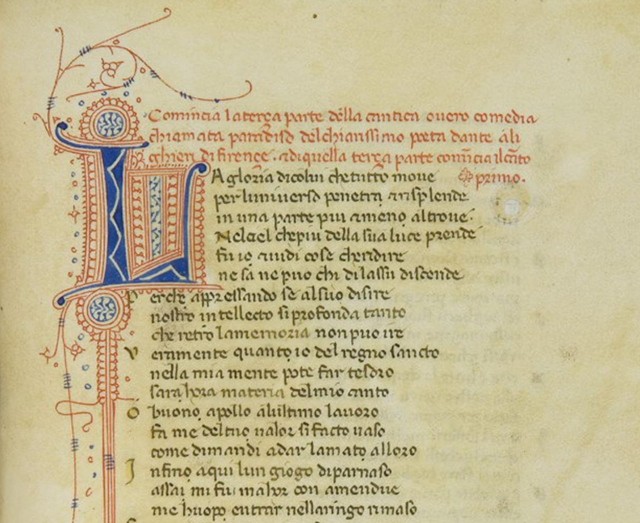 Comincia la terça parte della cantica overo comedia
chiamata paradiso del chiarissimo poeta dante ali
ghieri di firençe. ⁊ di quella terça parte comīcia il cāto
primo.
LA gloria di colui che tutto move
per l universo penetra ⁊ risplende
in una parte piu ⁊ meno altrove
Nel ciel che piu della sua luce prende
fu io ⁊ vidi cose che ridire
ne sa ne puo chi di lassu discende
Perche appressando se al suo disire
nostro intellecto si profonda tanto
che retro la memoria non puo ire
Veramente quanto io del regno sancto
nella mia mente pote far tesoro
sara hora materia del mio canto
O buono apollo a lultimo lavoro
fa me del tuo valor si facto vaso
come dimandi a dar lamato alloro
Infino a qui lun giogo di parnaso
assai mi fu ma hor con amendue
me huopo entrar nellaringo rimaso